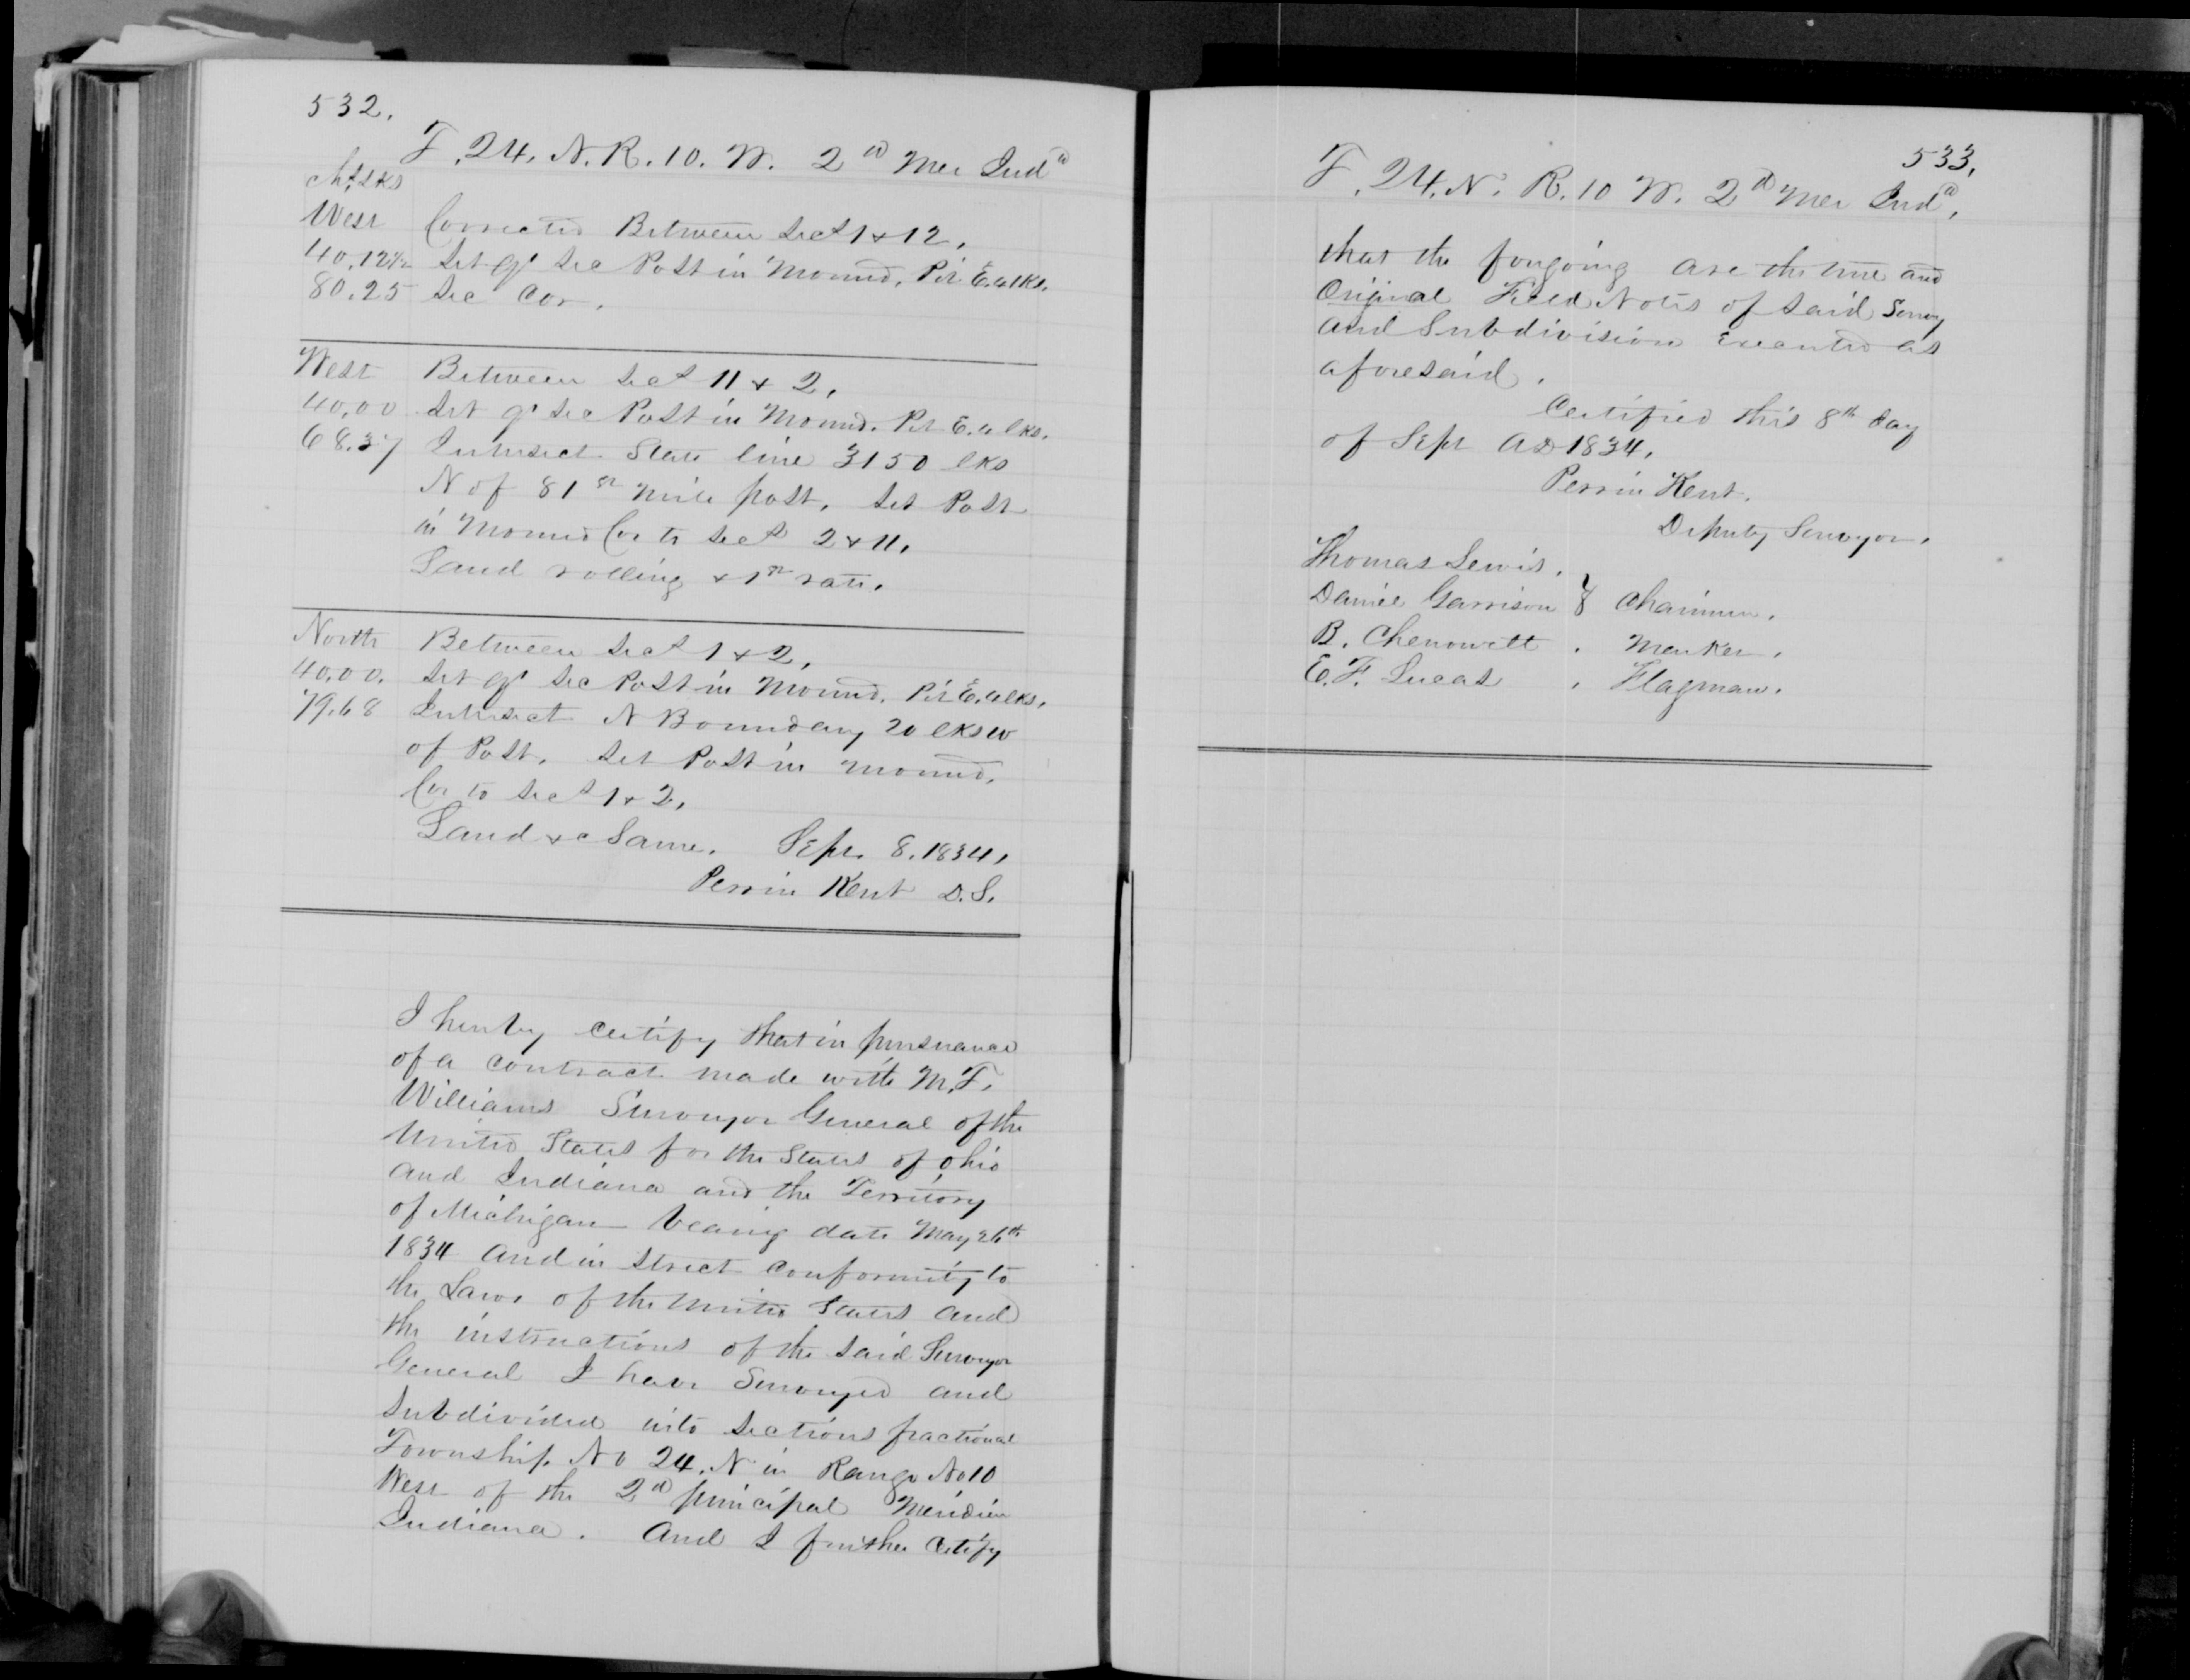 532.
T. 24. N. R. 10. W. 2d Mer Inda
Chs Lks
West Corrected Between Secs 1 & 12.
40.12½ Set qr Sec Post in Mound. Pit E. 6 lks.
80.25 Sec Cor.
West Between Secs 11 & 2.
40.00 Set qr Sec Post in Mound. Pit E. 6 lks.
68.37 Intersect State line 3150 lks
N of 81st mile post. Set Post
in Mound Cor to Secs 2 & 11.
Land rolling & 1st rate.
North Between Secs 1 & 2.
40.00. Set qr Sec Post in Mound. Pit E. 6 lks.
79.68 Intersect N Boundary 20 lks W
of Post. Set Post in mound.
Cor to Secs 1 & 2.
Land &c Same. Sept. 8. 1834.
Perrin Kent D.S.
I hereby certify that in pursuance
of a contract made with M.T.
Williams Surveyor General of the
United States for the States of Ohio
and Indiana and the Territory
of Michigan bearing date May 26th
1834 and in strict conformity to
the Laws of the United States and
the instructions of the said Surveyor
General I have Surveyed and
Subdivided into Sections fractional
Township No 24. N in Range No 10
West of the 2d principal Meridian
Indiana. And I further certify
533.
T. 24. N. R. 10 W. 2d Mer Inda.
that the foregoing are the true and
Original Field Notes of said Survey
and Subdivision Executed as
aforesaid.
Certified this 8th day
of Sept AD 1834.
Perrin Kent.
Deputy Surveyor.
Thomas Lewis.
Daniel Garrison } Chainmen.
B. Chenowett . Marker.
E. F. Lucas . Flagman.